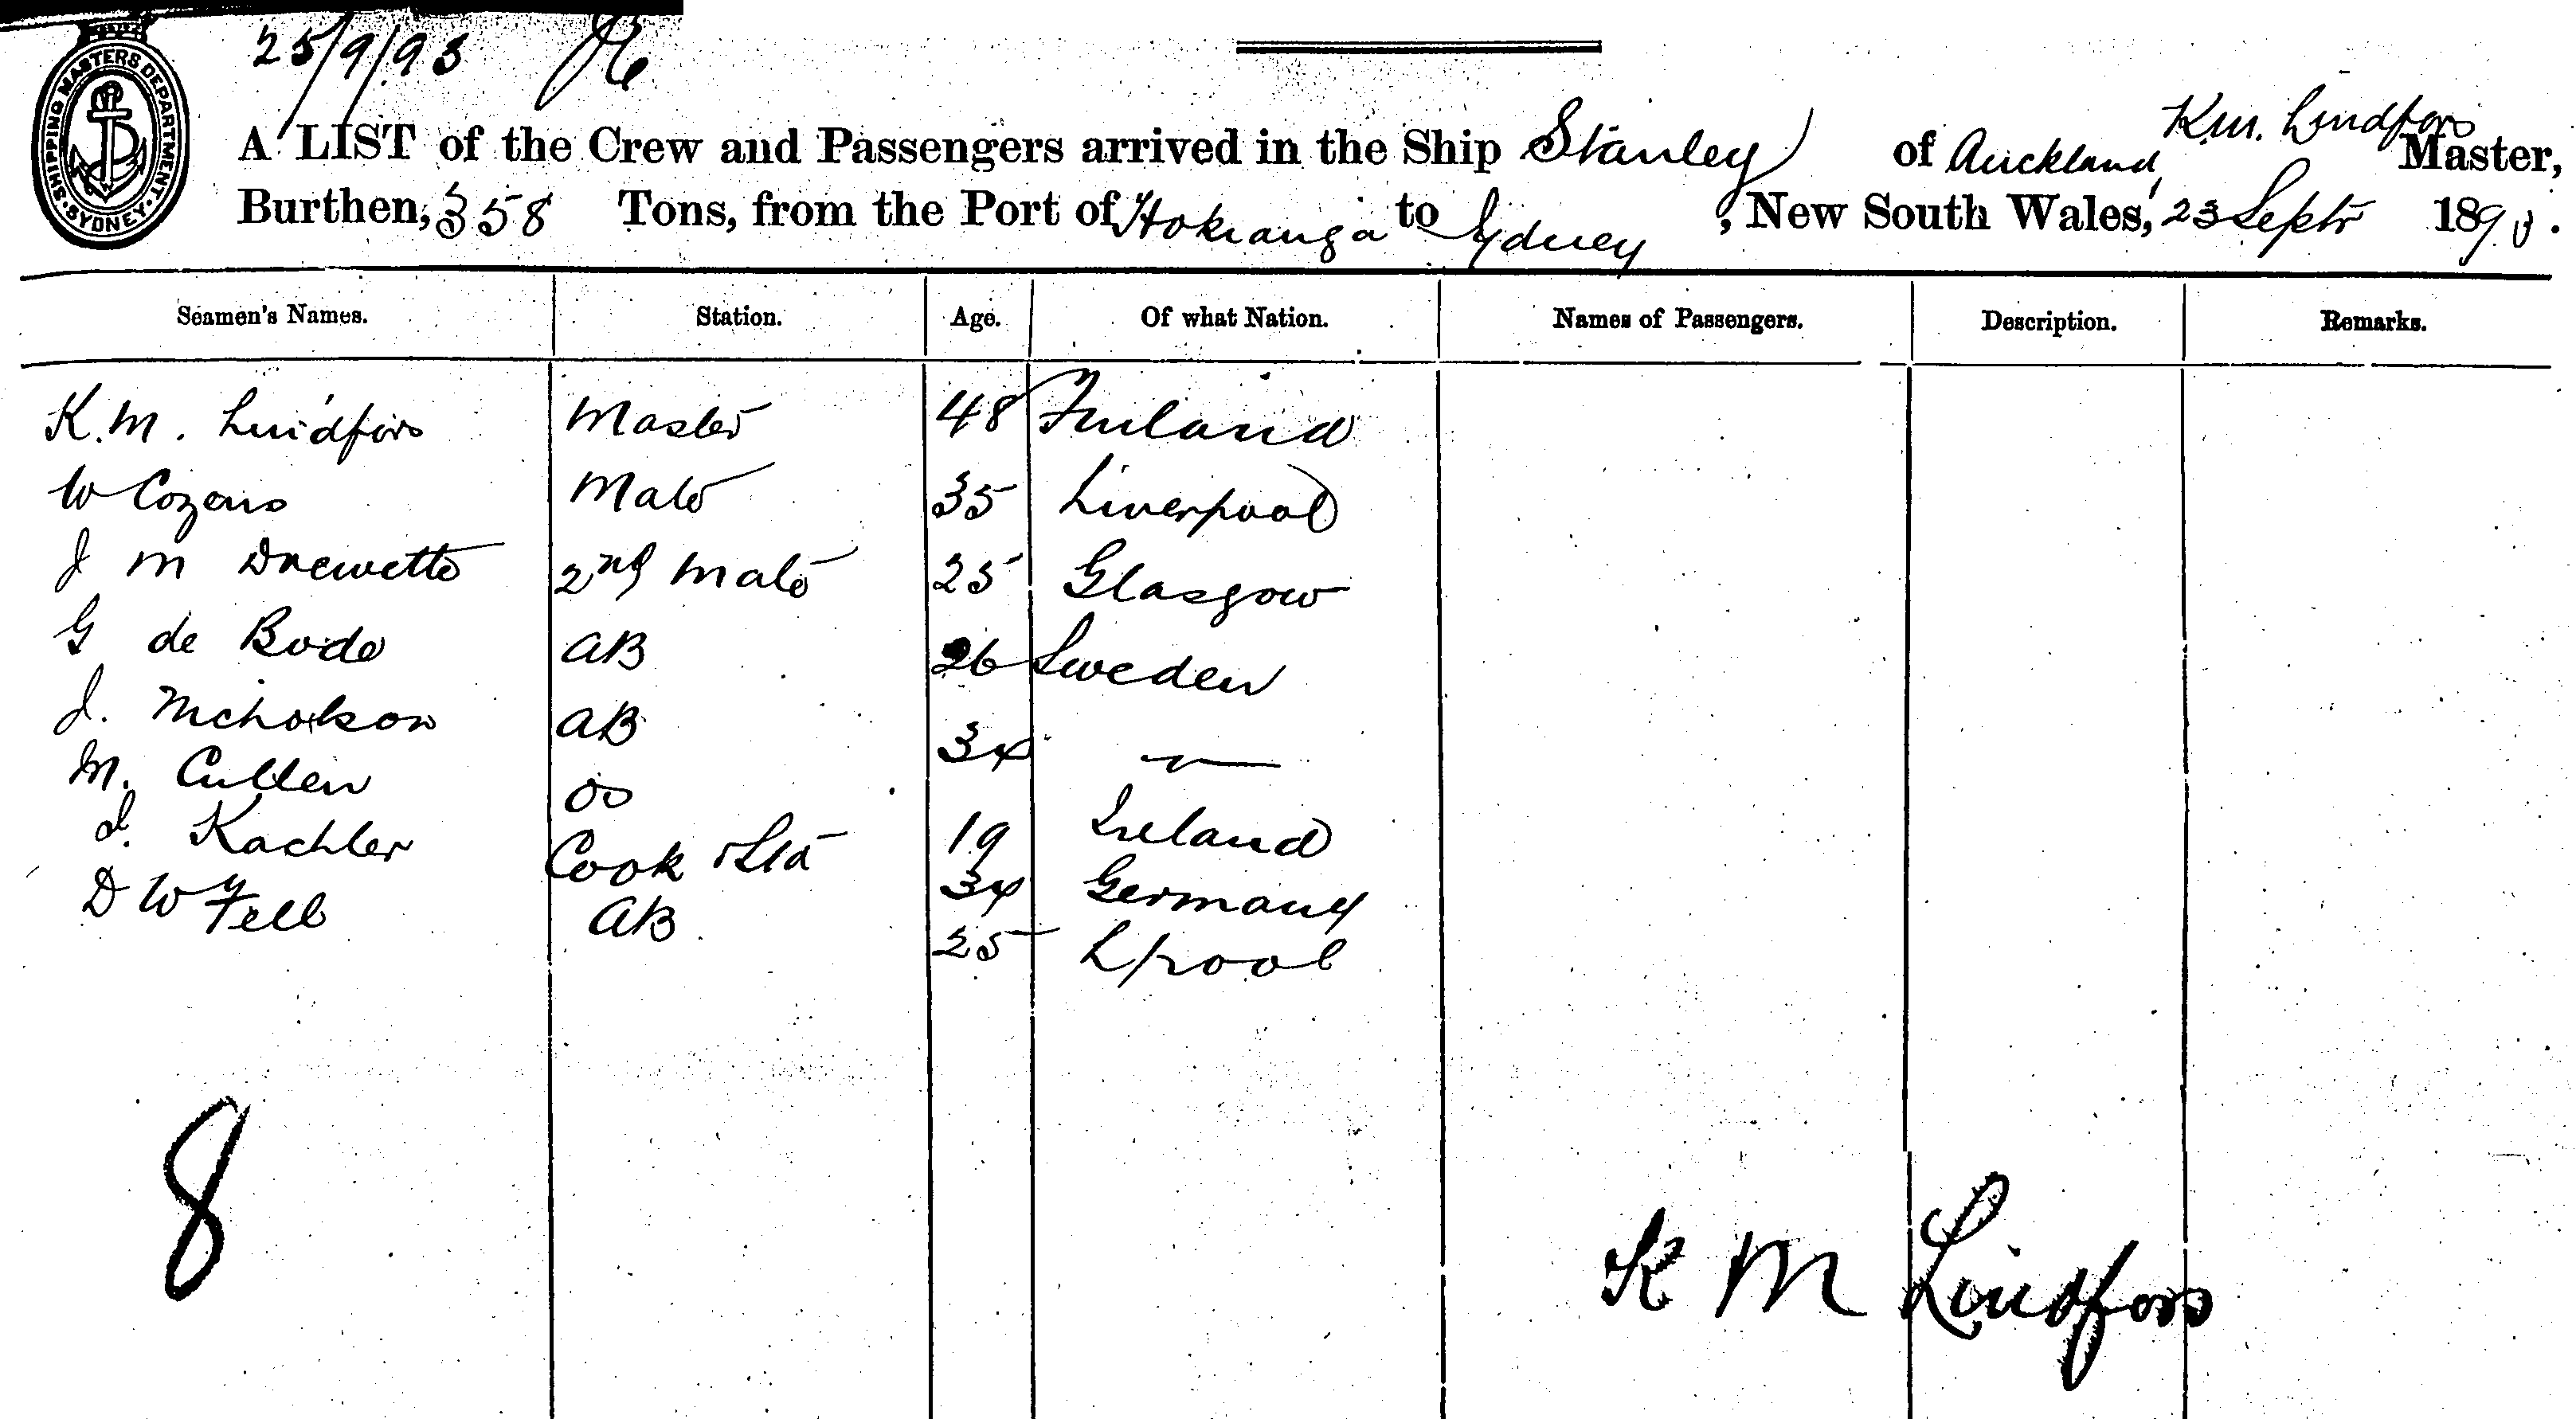 25/9/93
SHIPPING MASTERS DEPARTMENT · SYDNEY ·
A LIST of the Crew and Passengers arrived in the Ship Stanley of Auckland, K.M. Lindfors Master,
Burthen, 358 Tons, from the Port of Hokianga to Sydney, New South Wales, 23 Septr 1893.
Seamen's Names. Station. Age. Of what Nation. Names of Passengers. Description. Remarks.
K.M. Lindfors Master 48 Finland
W Cozens Mate 35 Liverpool
J M Drewette 2nd Mate 25 Glasgow
G de Bode AB 26 Sweden
J. Nicholson AB 34 "
M. Cullen OS 19 Ireland
J. Kachler Cook & Std 34 Germany
D W Fell AB 25 Lpool
8
K M Lindfors